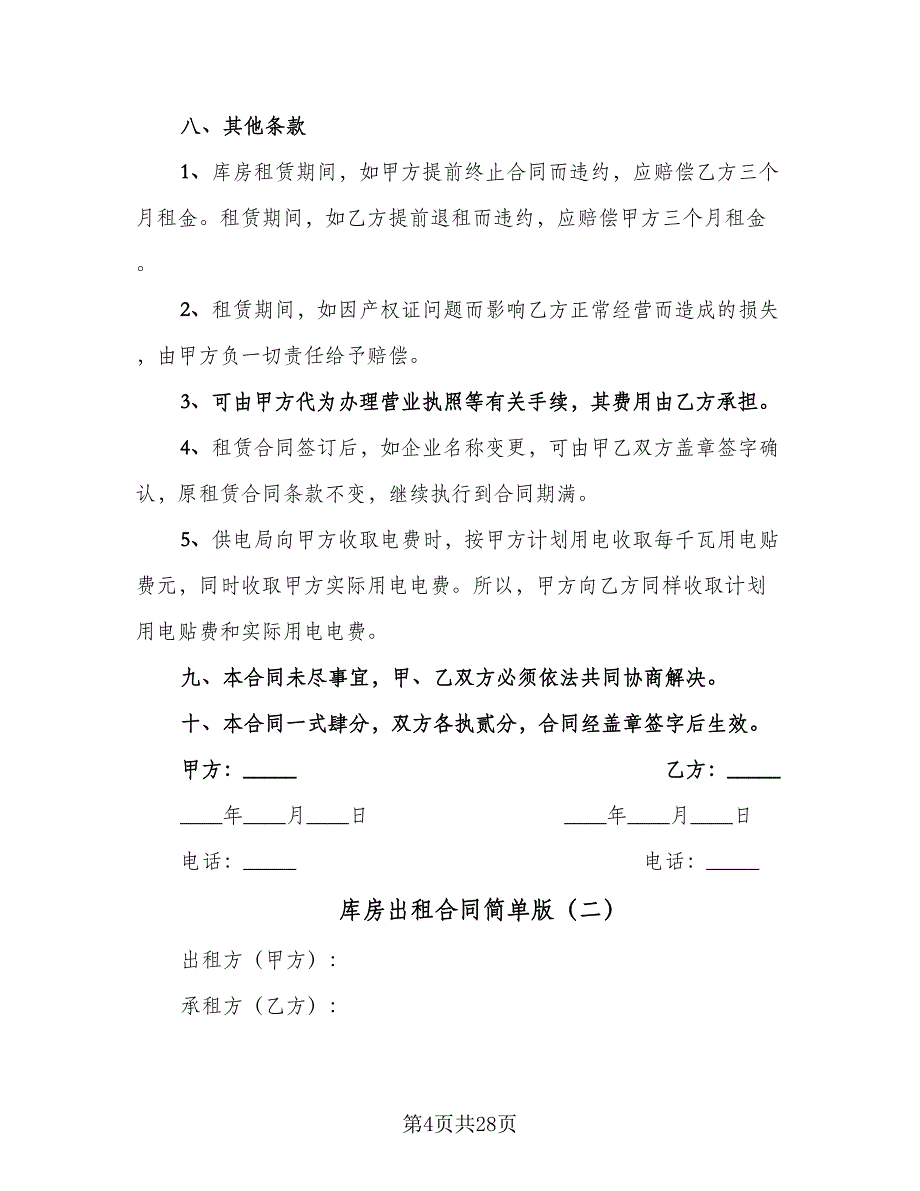 八、其他条款
1、库房租赁期间，如甲方提前终止合同而违约，应赔偿乙方三个
月租金。租赁期间，如乙方提前退租而违约，应赔偿甲方三个月租金
。
2、租赁期间，如因产权证问题而影响乙方正常经营而造成的损失
，由甲方负一切责任给予赔偿。
3、可由甲方代为办理营业执照等有关手续，其费用由乙方承担。
4、租赁合同签订后，如企业名称变更，可由甲乙双方盖章签字确
认，原租赁合同条款不变，继续执行到合同期满。
5、供电局向甲方收取电费时，按甲方计划用电收取每千瓦用电贴
费元，同时收取甲方实际用电电费。所以，甲方向乙方同样收取计划
用电贴费和实际用电电费。
九、本合同未尽事宜，甲、乙双方必须依法共同协商解决。
十、本合同一式肆分，双方各执贰分，合同经盖章签字后生效。
甲方：_____ 乙方：_____
____年____月____日 ____年____月____日
电话：_____ 电话：_____
库房出租合同简单版（二）
出租方（甲方）：
承租方（乙方）：
第4页共28页